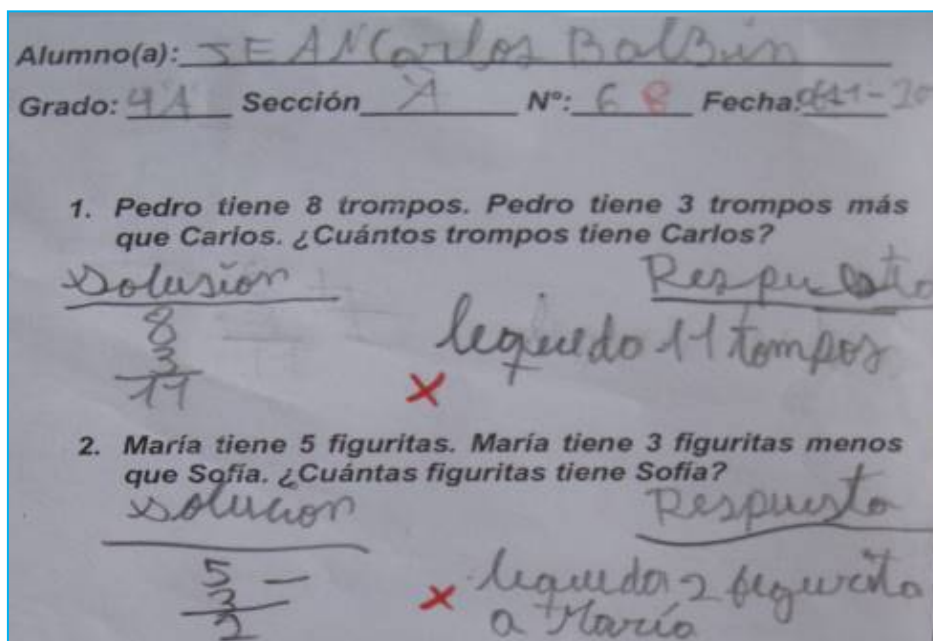 Alumno(a): JEANCarlos Balbin
Grado: 4A Sección A N°: 6 8 Fecha:
1. Pedro tiene 8 trompos. Pedro tiene 3 trompos más
que Carlos. ¿Cuántos trompos tiene Carlos?
Solusión Respuesta
8
3
11
lequedo 11 tompos
2. María tiene 5 figuritas. María tiene 3 figuritas menos
que Sofía. ¿Cuántas figuritas tiene Sofía?
solucion Respuesta
5 -
3
2
lequeda 2 figurita
a María